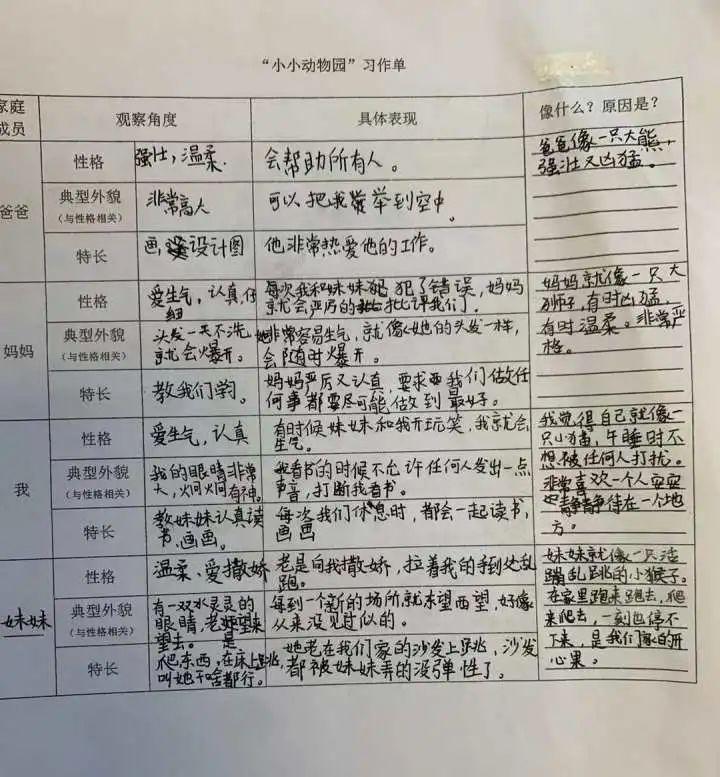 “小小动物园”习作单
家庭
成员
观察角度
具体表现
像什么？原因是？
爸爸
性格
强壮，温柔.
会帮助所有人。
爸爸像一只大熊，
强壮又凶猛。
典型外貌
（与性格相关）
非常高人
可以把我举到空中。
特长
画设计图
他非常热爱他的工作。
妈妈
性格
爱生气，认真，仔
细
每次我和妹妹犯了错误，妈妈
就会严厉的批评我们。
妈妈就像一只大
狮子，有时凶猛，
有时温柔。非常严
格。
典型外貌
（与性格相关）
头发一天不洗，
就会爆开。
她非常容易生气，就像她的头发一样，
会随时爆开。
特长
教我们学习。
妈妈严厉又认真，要求我们做任
何事都要尽可能做到最好。
我
性格
爱生气，认真
有时候妹妹和我开玩笑，我就会
生气。
我觉得自己就像一
只小猫，午睡时不
想被任何人打扰。
非常喜欢一个人安安
静静待在一个地
方。
典型外貌
（与性格相关）
我的眼睛非常
大，炯炯有神。
我看书的时候不允许任何人发出一点
声音，打断我看书。
特长
教妹妹认真读
书、画画。
每次我们休息时，都会一起读书，
画画
妹妹
性格
温柔、爱撒娇
老是向我撒娇，拉着我的手到处乱
跑。
妹妹就像一只活
蹦乱跳的小猴子。
在家里跑来跑去，爬
来爬去，一刻也停不
下来，是我们家的开
心果。
典型外貌
（与性格相关）
有一双水灵灵的
眼睛，老是望来
望去。
每到一个新的场所，就东望西望，好像
从来没见过似的。
特长
爬东西，在床上跳，
叫她干啥都行。
她老在我们家的沙发上跳，沙发
都被妹妹弄的没弹性了。